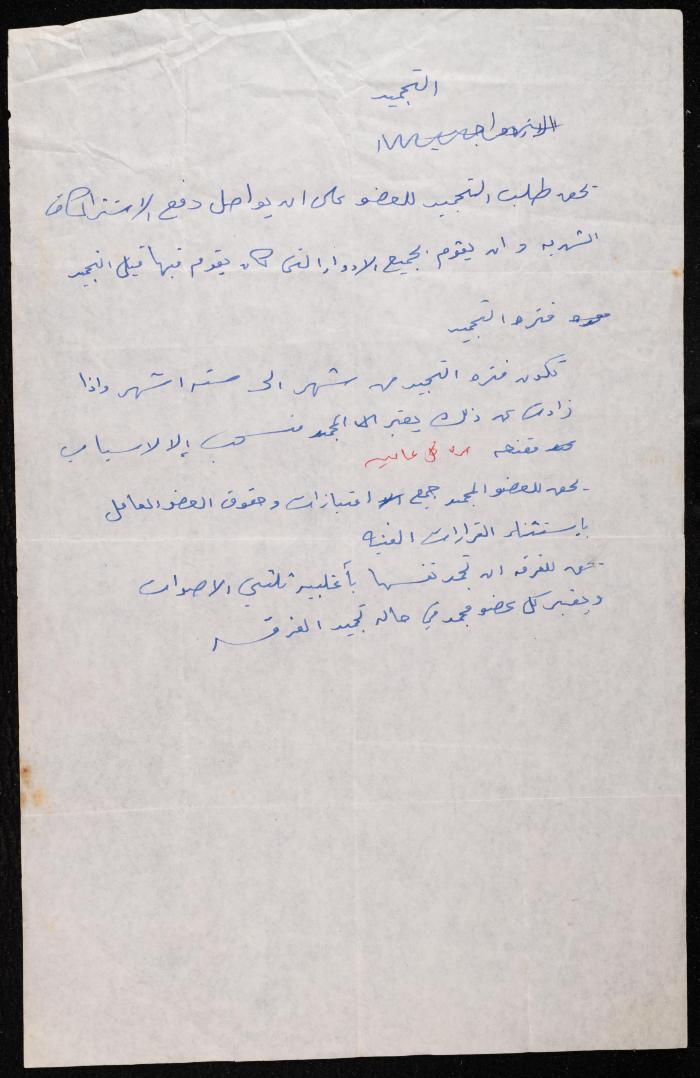 التجميد
يحق طلب التجميد للعضو على ان يواصل دفع الاشتراكات
الشهريه وان يقوم بجميع الادوار التي كان يقوم فيها قبل التجميد
فتره التجميد
تكون فتره التجميد من شهر الى سته اشهر واذا
زادت عن ذلك يعتبر المجمد منسحب إلا لاسباب
مقنعه
يحق للعضو المجمد جميع امتيازات وحقوق العضو العامل
باستثناء القرارات الفنيه
يحق للفرقه ان تجمد نفسها بأغلبيه ثلثي الاصوات
ويعتبر كل عضو مجمد في حاله تجميد الفرقه